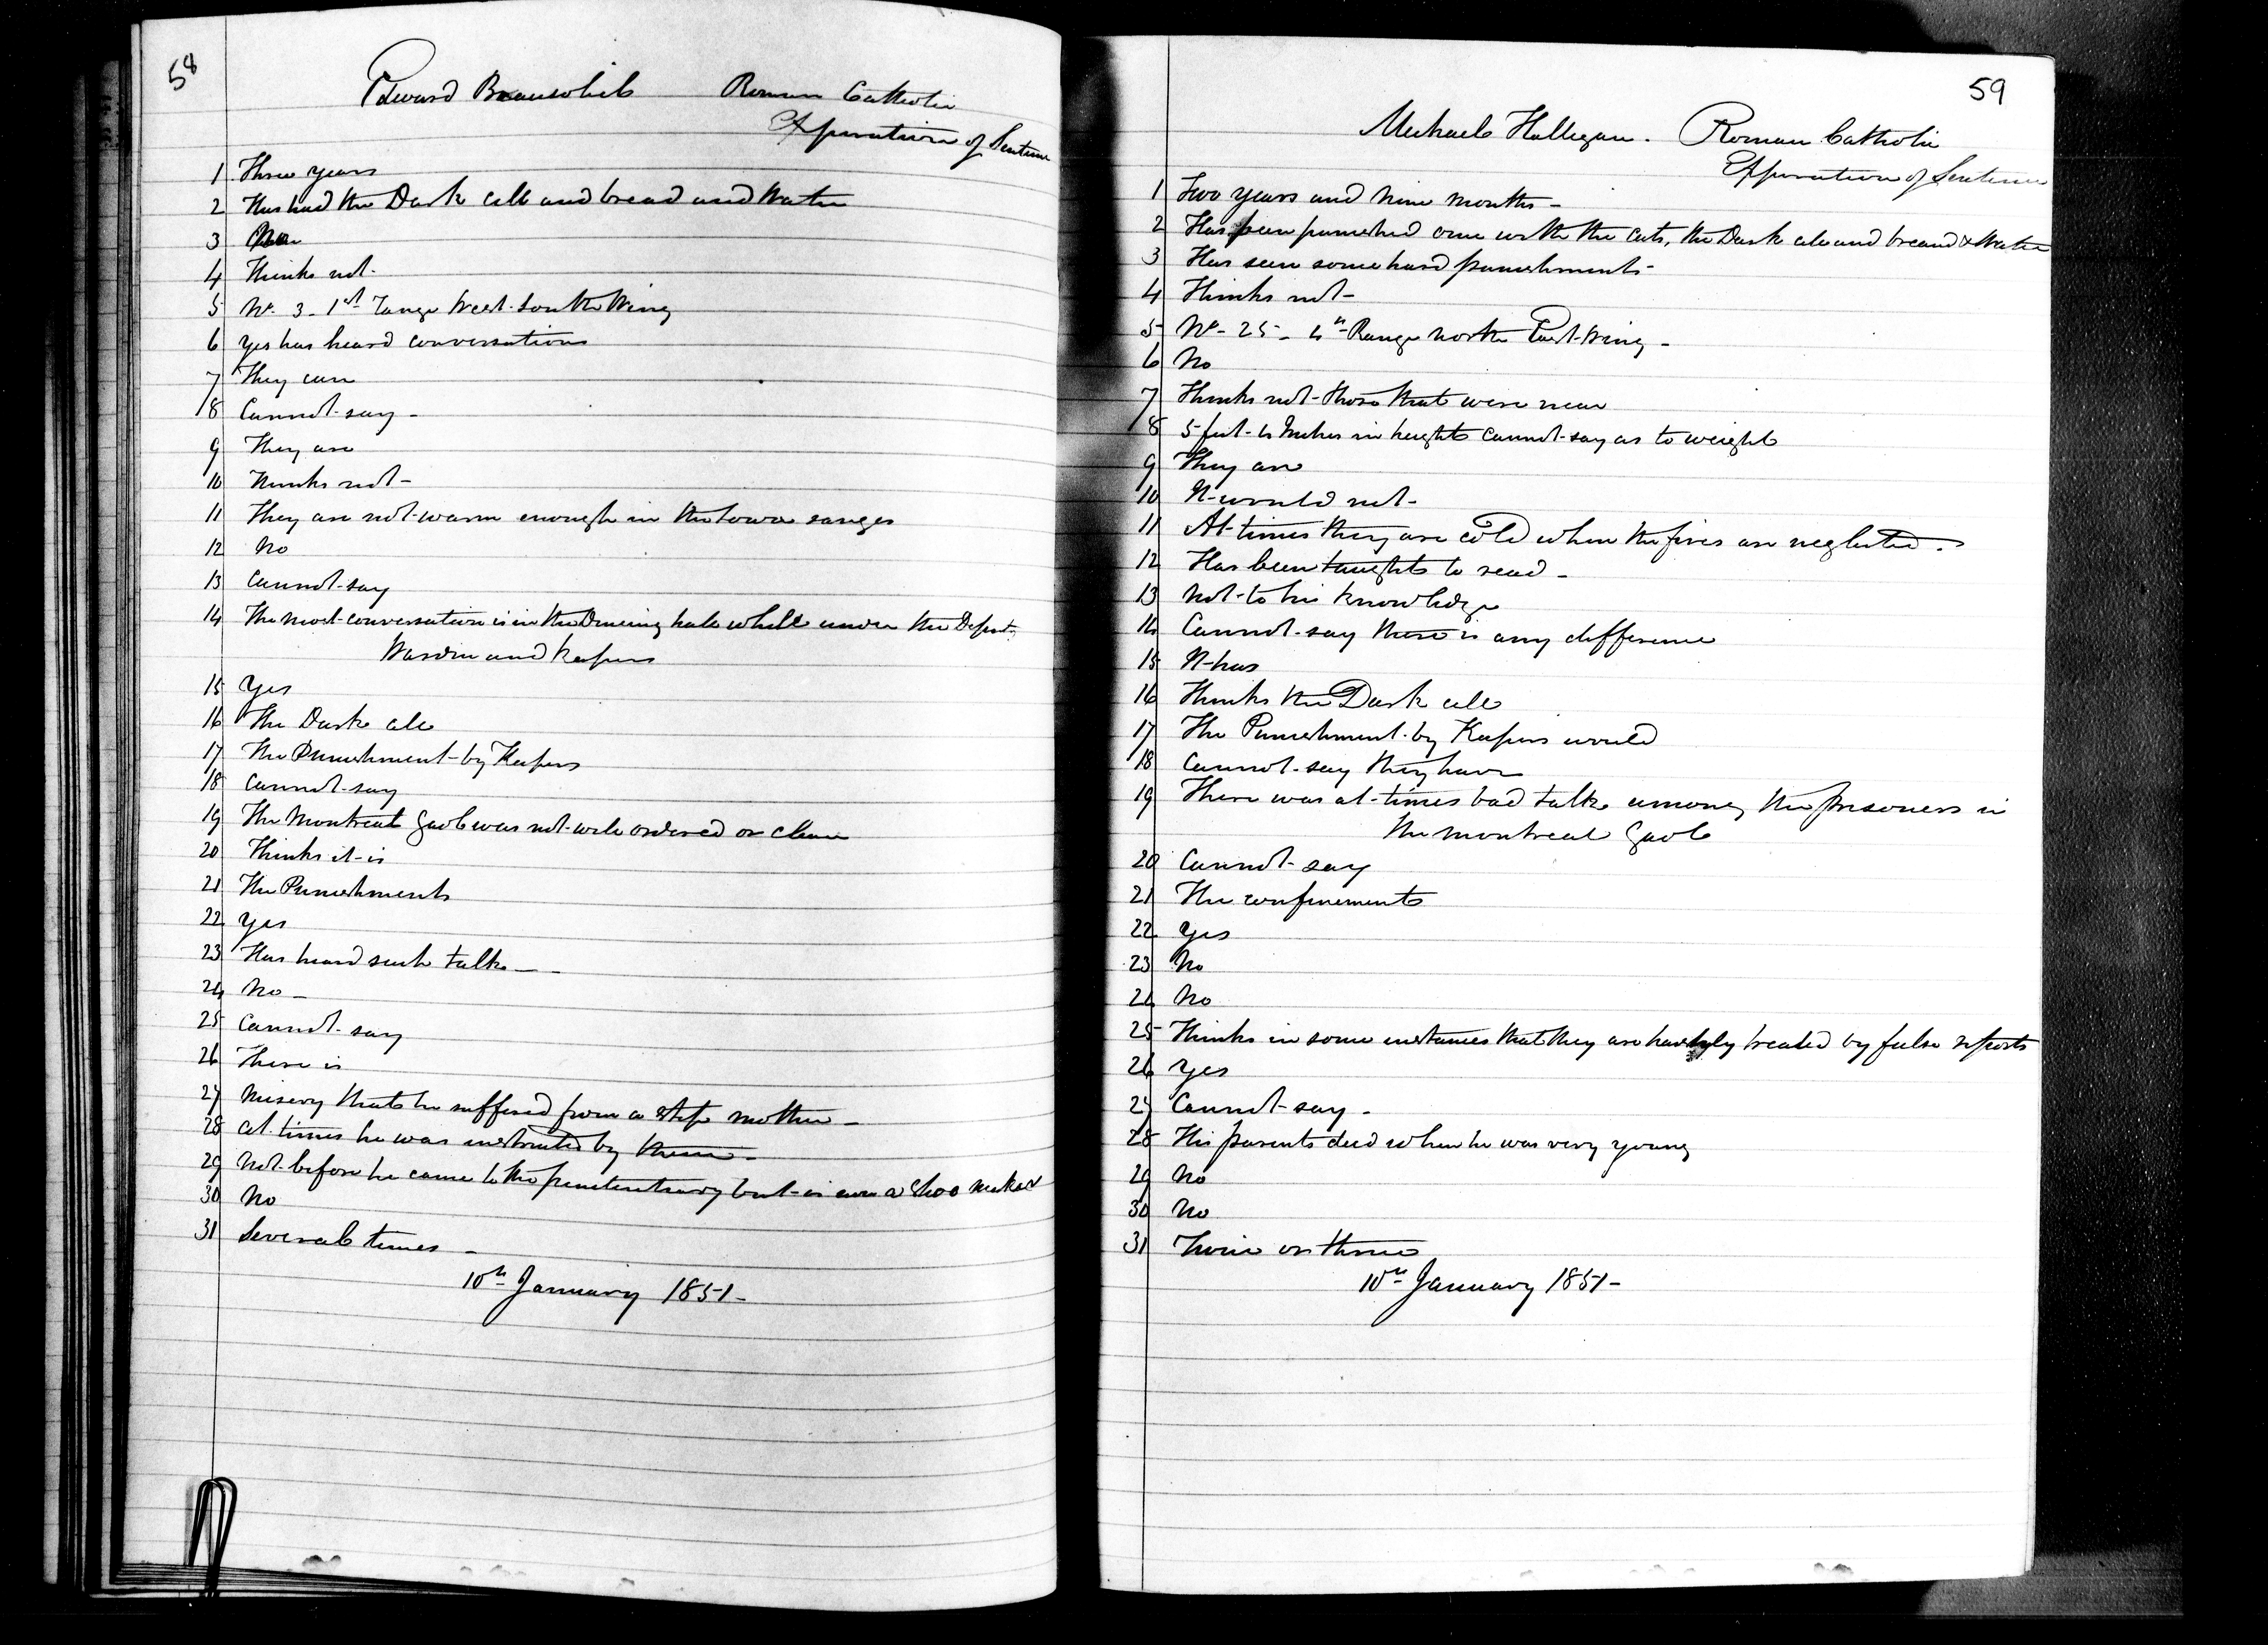 58
Edward Beausoleil Roman Catholic
Expiration of Sentence
1 Three years
2 Has had the Dark Cell and bread and Water
3
4 Thinks not-
5 No. 3 - 1st range West South Wing
6 Yes has heard conversations
7 They can
8 Cannot say -
9 They are
10 Thinks not -
11 They are not warm enough in the lower ranges
12 No
13 Cannot say
14 The most conversation is in the Dineing hall while under the Deputy
Warden and Keepers
15 Yes
16 The Dark cell
17 The Punishment by Keepers
18 Cannot say
19 The Montreal Gaol was not well ordered or clean
20 Thinks it is
21 The Punishments
22 Yes
23 Has heard such talk -
24 No -
25 Cannot say
26 There is
27 Misery that he suffered from a step mother -
28 At times he was instructed by them -
29 Not before he came to the penitentiary but is now a Shoo maker
30 No
31 Several times -
10th January 1851 -
59
Michael Hallegan. Roman Catholic
Expiration of Sentence
1 Two years and nine months -
2 Has been punished once with the Cats, the Dark cell and bread & Water
3 Has seen some hard punishments -
4 Thinks not -
5 No - 25 - 4th Range North East Wing -
6 No
7 Thinks not those that were near
8 5 feet 4 Inches in height cannot say as to weight
9 They are
10 It would not -
11 At times they are cold when the fires are neglected.
12 Has been taught to read -
13 Not to his knowledge
14 Cannot say there is any difference
15 It has
16 Thinks the Dark cell
17 The Punishment by Keepers would
18 Cannot say they have
19 There was at times bad talk among the prisoners in
the Montreal Gaol
20 Cannot say
21 The confinement
22 Yes
23 No
24 No
25 Thinks in some instances that they are harshly treated by false reports
26 Yes
27 Cannot say -
28 His parents died when he was very young
29 No
30 No
31 Twice or thrice
10th January 1851 -